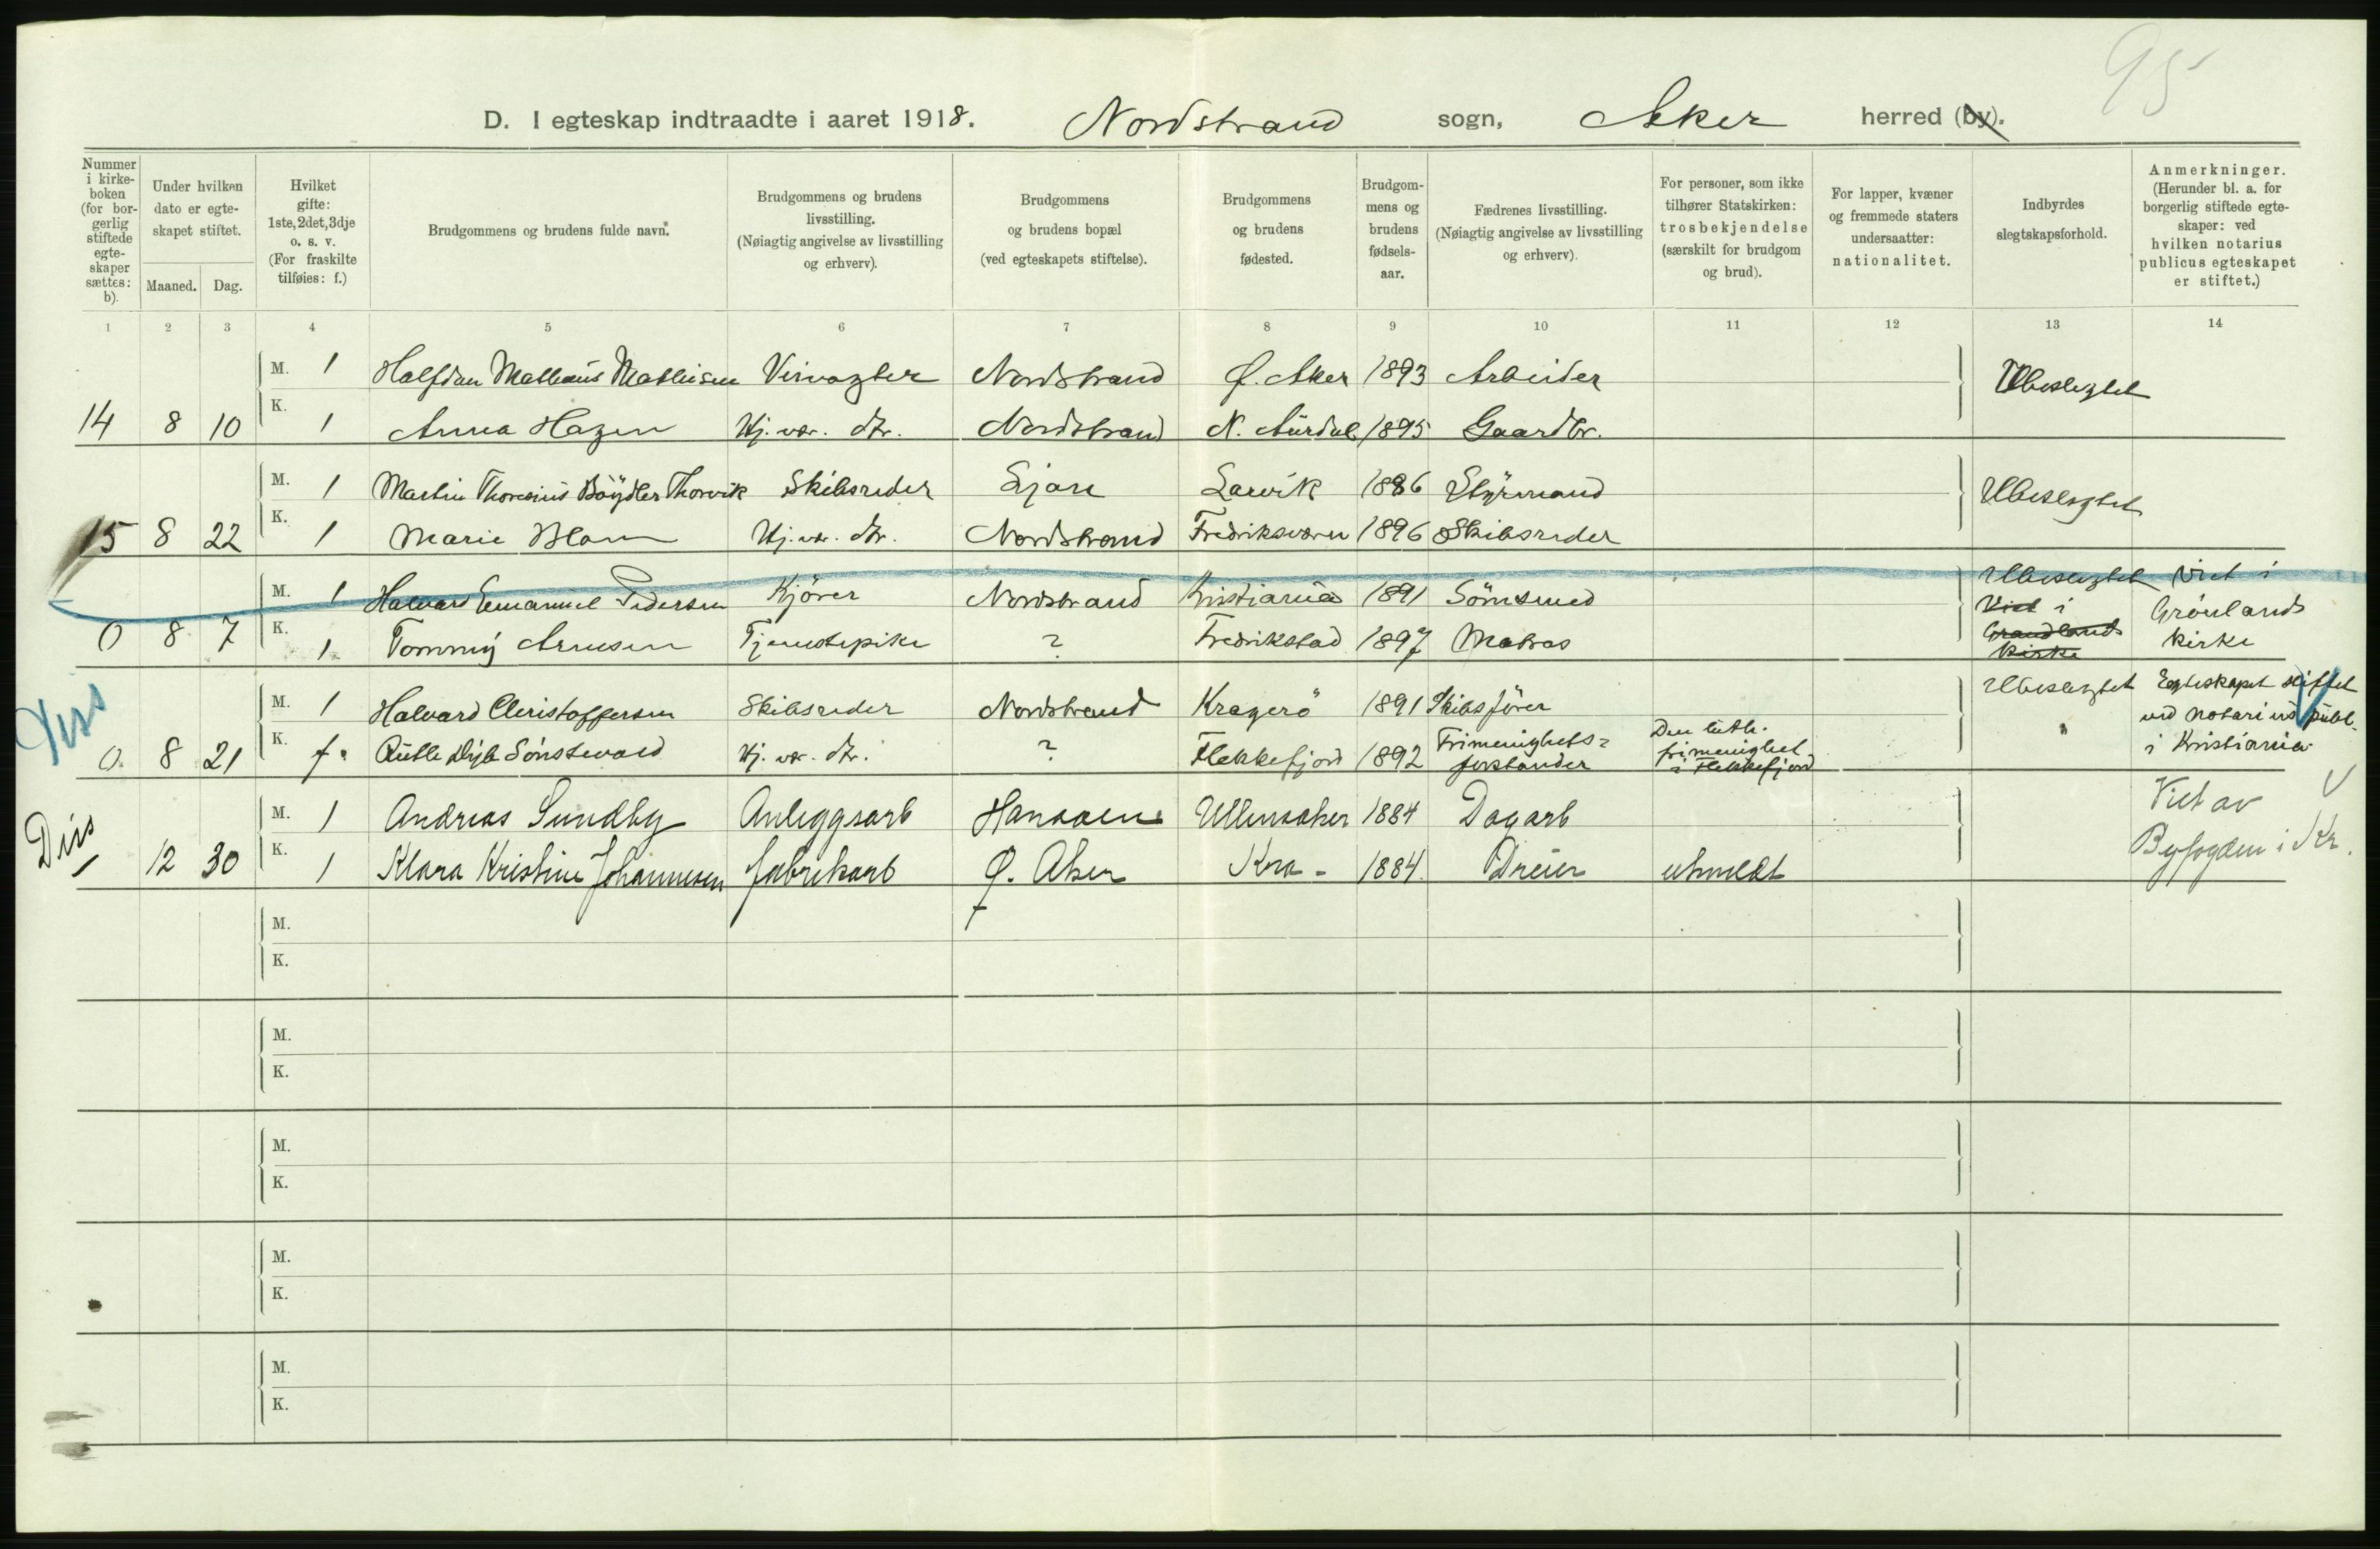 95
D. I egteskap indtraadte i aaret 1918. Nordstrand sogn, Aker herred (by).
Nummer i kirkeboken (for borgerlig stiftede egteskaper sættes: b).
Under hvilken dato er egteskapet stiftet.
Maaned. Dag.
Hvilket gifte: 1ste, 2det, 3dje o. s. v. (For fraskilte tilføies: f.)
Brudgommens og brudens fulde navn.
Brudgommens og brudens livsstilling. (Nøiagtig angivelse av livsstilling og erhverv).
Brudgommens og brudens bopæl (ved egteskapets stiftelse).
Brudgommens og brudens fødested.
Brudgommens og brudens fødselsaar.
Fædrenes livsstilling. (Nøiagtig angivelse av livsstilling og erhverv).
For personer, som ikke tilhører Statskirken: trosbekjendelse (særskilt for brudgom og brud).
For lapper, kvæner og fremmede staters undersaatter: nationalitet.
Indbyrdes slegtskapsforhold.
Anmerkninger. (Herunder bl. a. for borgerlig stiftede egteskaper: ved hvilken notarius publicus egteskapet er stiftet.)
1 2 3 4 5 6 7 8 9 10 11 12 13 14
M. 1 Halfdan Matheus Mathisen Nordstrand Ø. Aker 1893 Arbeider Ubeslegtet
14 8 10 K. 1 Anna Hagen Hj. vær. dtr. Nordstrand N. Aurdal 1895 Gaardbr.
M. 1 Martin Thoresius Thorvik Skibsreder Ljan Larvik 1886 Styrmand Ubeslegtet
15 8 22 K. 1 Marie Blom Hj. vær. dtr. Nordstrand Fredriksværn 1896 Skibsreder
M. 1 Halvard Emanuel Pedersen Kjörer Nordstrand Kristiania 1891 Ubeslegtet Viet i
Viet i Grönlands
0 8 7 K. 1 Tommy Arnesen Tjenestepike ? Fredrikstad 1897 Matros Grandlands kirke
Kirke
M. 1 Halvard Christoffersen Skibsreder Nordstrand Kragerö 1891 Skibsförer Ubeslegtet Egteskapet stiftet
ved notarius publ.
0. 8 21 K. f. Hj. vær. dtr. ? Flekkefjord 1892 Frimenighets-forstander Den luth. frimenighet i Flekkefjord i Kristiania
Diss M. 1 Andreas Sundby Anleggsarb Ullensaker 1884 Dagarb Viet av
12 30 K. 1 Klara Kristine Johannesen fabrikarb Ø. Aker Kra - 1884. Dreier uhmeldt Byfogden i Kr.
M.
K.
M.
K.
M.
K.
M.
K.
M.
K.